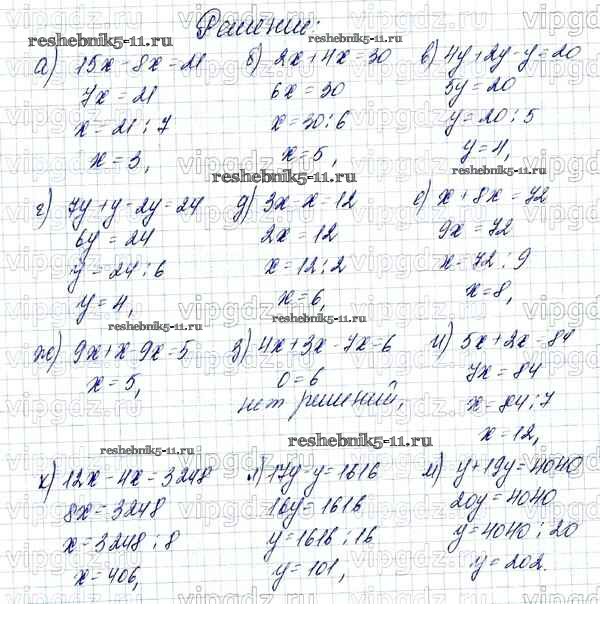 Решение:
а) 15x - 8x = 21
7x = 21
x = 21 : 7
x = 3,
б) 2x + 4x = 30
6x = 30
x = 30 : 6
x = 5,
в) 4y + 2y - y = 20
5y = 20
y = 20 : 5
y = 4,
г) 7y + y - 2y = 24
6y = 24
y = 24 : 6
y = 4,
д) 3x - x = 12
2x = 12
x = 12 : 2
x = 6,
е) x + 8x = 72
9x = 72
x = 72 : 9
x = 8,
ж) 9x + x - 9x = 5
x = 5,
з) 4x + 3x - 7x = 6
0 = 6
нет решений,
и) 5x + 2x = 84
7x = 84
x = 84 : 7
x = 12,
к) 12x - 4x = 3248
8x = 3248
x = 3248 : 8
x = 406,
л) 17y - y = 1616
16y = 1616
y = 1616 : 16
y = 101,
м) y + 19y = 4040
20y = 4040
y = 4040 : 20
y = 202.
reshebnik5-11.ru
reshebnik5-11.ru
reshebnik5-11.ru
reshebnik5-11.ru
reshebnik5-11.ru
reshebnik5-11.ru
reshebnik5-11.ru
reshebnik5-11.ru
vipgdz.ru